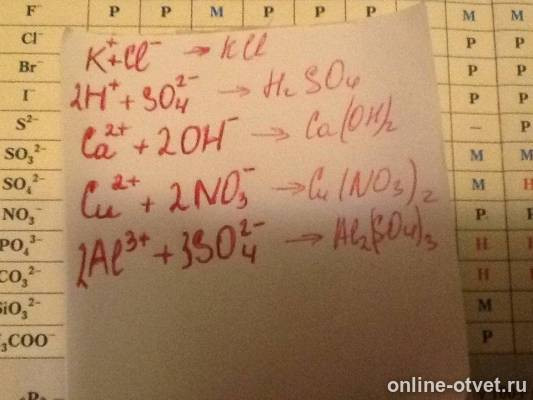 F⁻ P P M P P P M M
Cl⁻ P P
Br⁻ P P
I⁻ P P
S²⁻ – P
SO₃²⁻ M M
SO₄²⁻ M Н
NO₃⁻ P
PO₄³⁻ Н Н
CO₃²⁻ Н Н
SiO₃²⁻ M
₃COO⁻ P
K⁺ + Cl⁻ → KCl
2H⁺ + SO₄²⁻ → H₂SO₄
Ca²⁺ + 2OH⁻ → Ca(OH)₂
Cu²⁺ + 2NO₃⁻ → Cu(NO₃)₂
2Al³⁺ + 3SO₄²⁻ → Al₂(SO₄)₃
online-otvet.ru